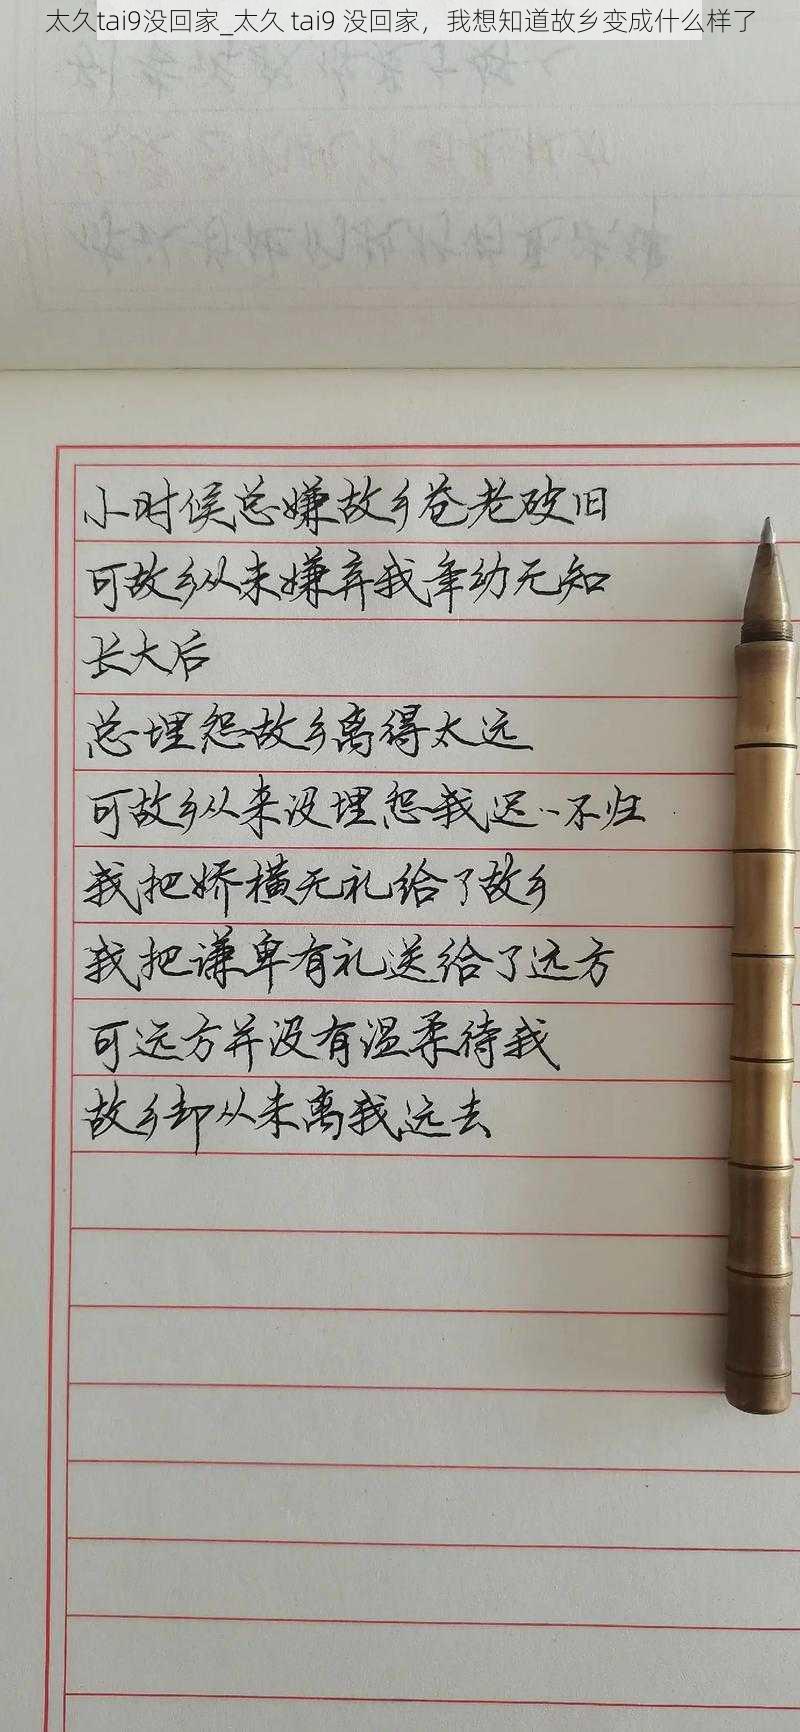 太久tai9没回家_太久 tai9 没回家，我想知道故乡变成什么样了
小时候总嫌故乡苍老破旧
可故乡从未嫌弃我年幼无知
长大后
总埋怨故乡离得太远
可故乡从来没埋怨我迟‥不归
我把娇横无礼给了故乡
我把谦卑有礼送给了远方
可远方并没有温柔待我
故乡却从未离我远去